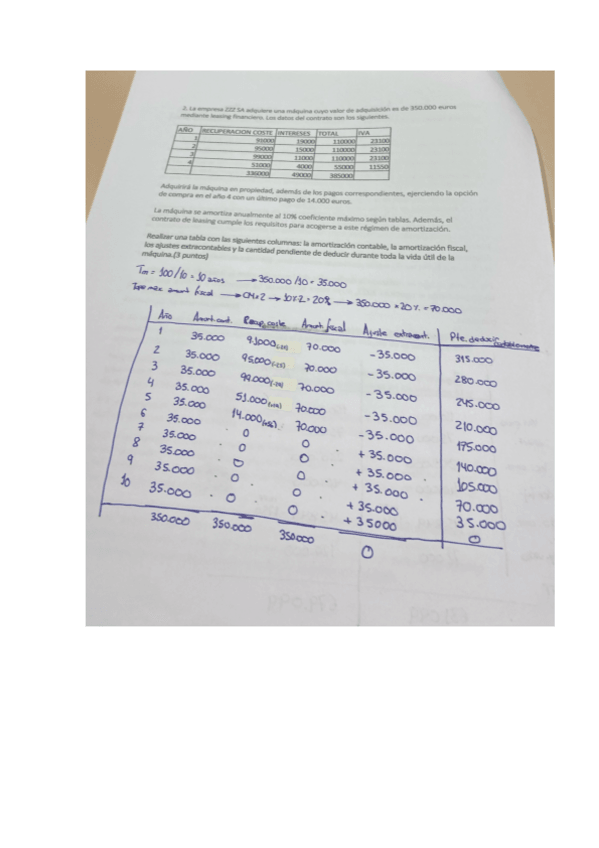 2. La empresa ZZZ SA adquiere una máquina cuyo valor de adquisición es de 350.000 euros
mediante leasing financiero. Los datos del contrato son los siguientes.
AÑO RECUPERACION COSTE INTERESES TOTAL IVA
1 91000 19000 110000 23100
2 95000 15000 110000 23100
3 99000 11000 110000 23100
4 51000 4000 55000 11550
336000 49000 385000
Adquirirá la máquina en propiedad, además de los pagos correspondientes, ejerciendo la opción
de compra en el año 4 con un último pago de 14.000 euros.
La máquina se amortiza anualmente al 10% coeficiente máximo según tablas. Además, el
contrato de leasing cumple los requisitos para acogerse a este régimen de amortización.
Realizar una tabla con las siguientes columnas: la amortización contable, la amortización fiscal,
los ajustes extracontables y la cantidad pendiente de deducir durante toda la vida útil de la
máquina.(3 puntos)
100/10 = 10 años → 350.000/10 = 35.000
max amort fiscal → CM×2 → 10×2 = 20% → 350.000 × 20% = 70.000
Año Amort. cont. Recup. coste Amort. fiscal Ajuste extracont. Pte. deducir
1 35.000 91.000 70.000 -35.000 315.000
2 35.000 95.000 70.000 -35.000 280.000
3 35.000 99.000 70.000 -35.000 245.000
4 35.000 51.000 70.000 -35.000 210.000
5 35.000 14.000 70.000 -35.000 175.000
6 35.000 0 0 +35.000 140.000
7 35.000 0 0 +35.000 105.000
8 35.000 0 0 +35.000 70.000
9 35.000 0 0 +35.000 35.000
10 35.000 0 0 +35000 0
350.000 350.000 350.000 0